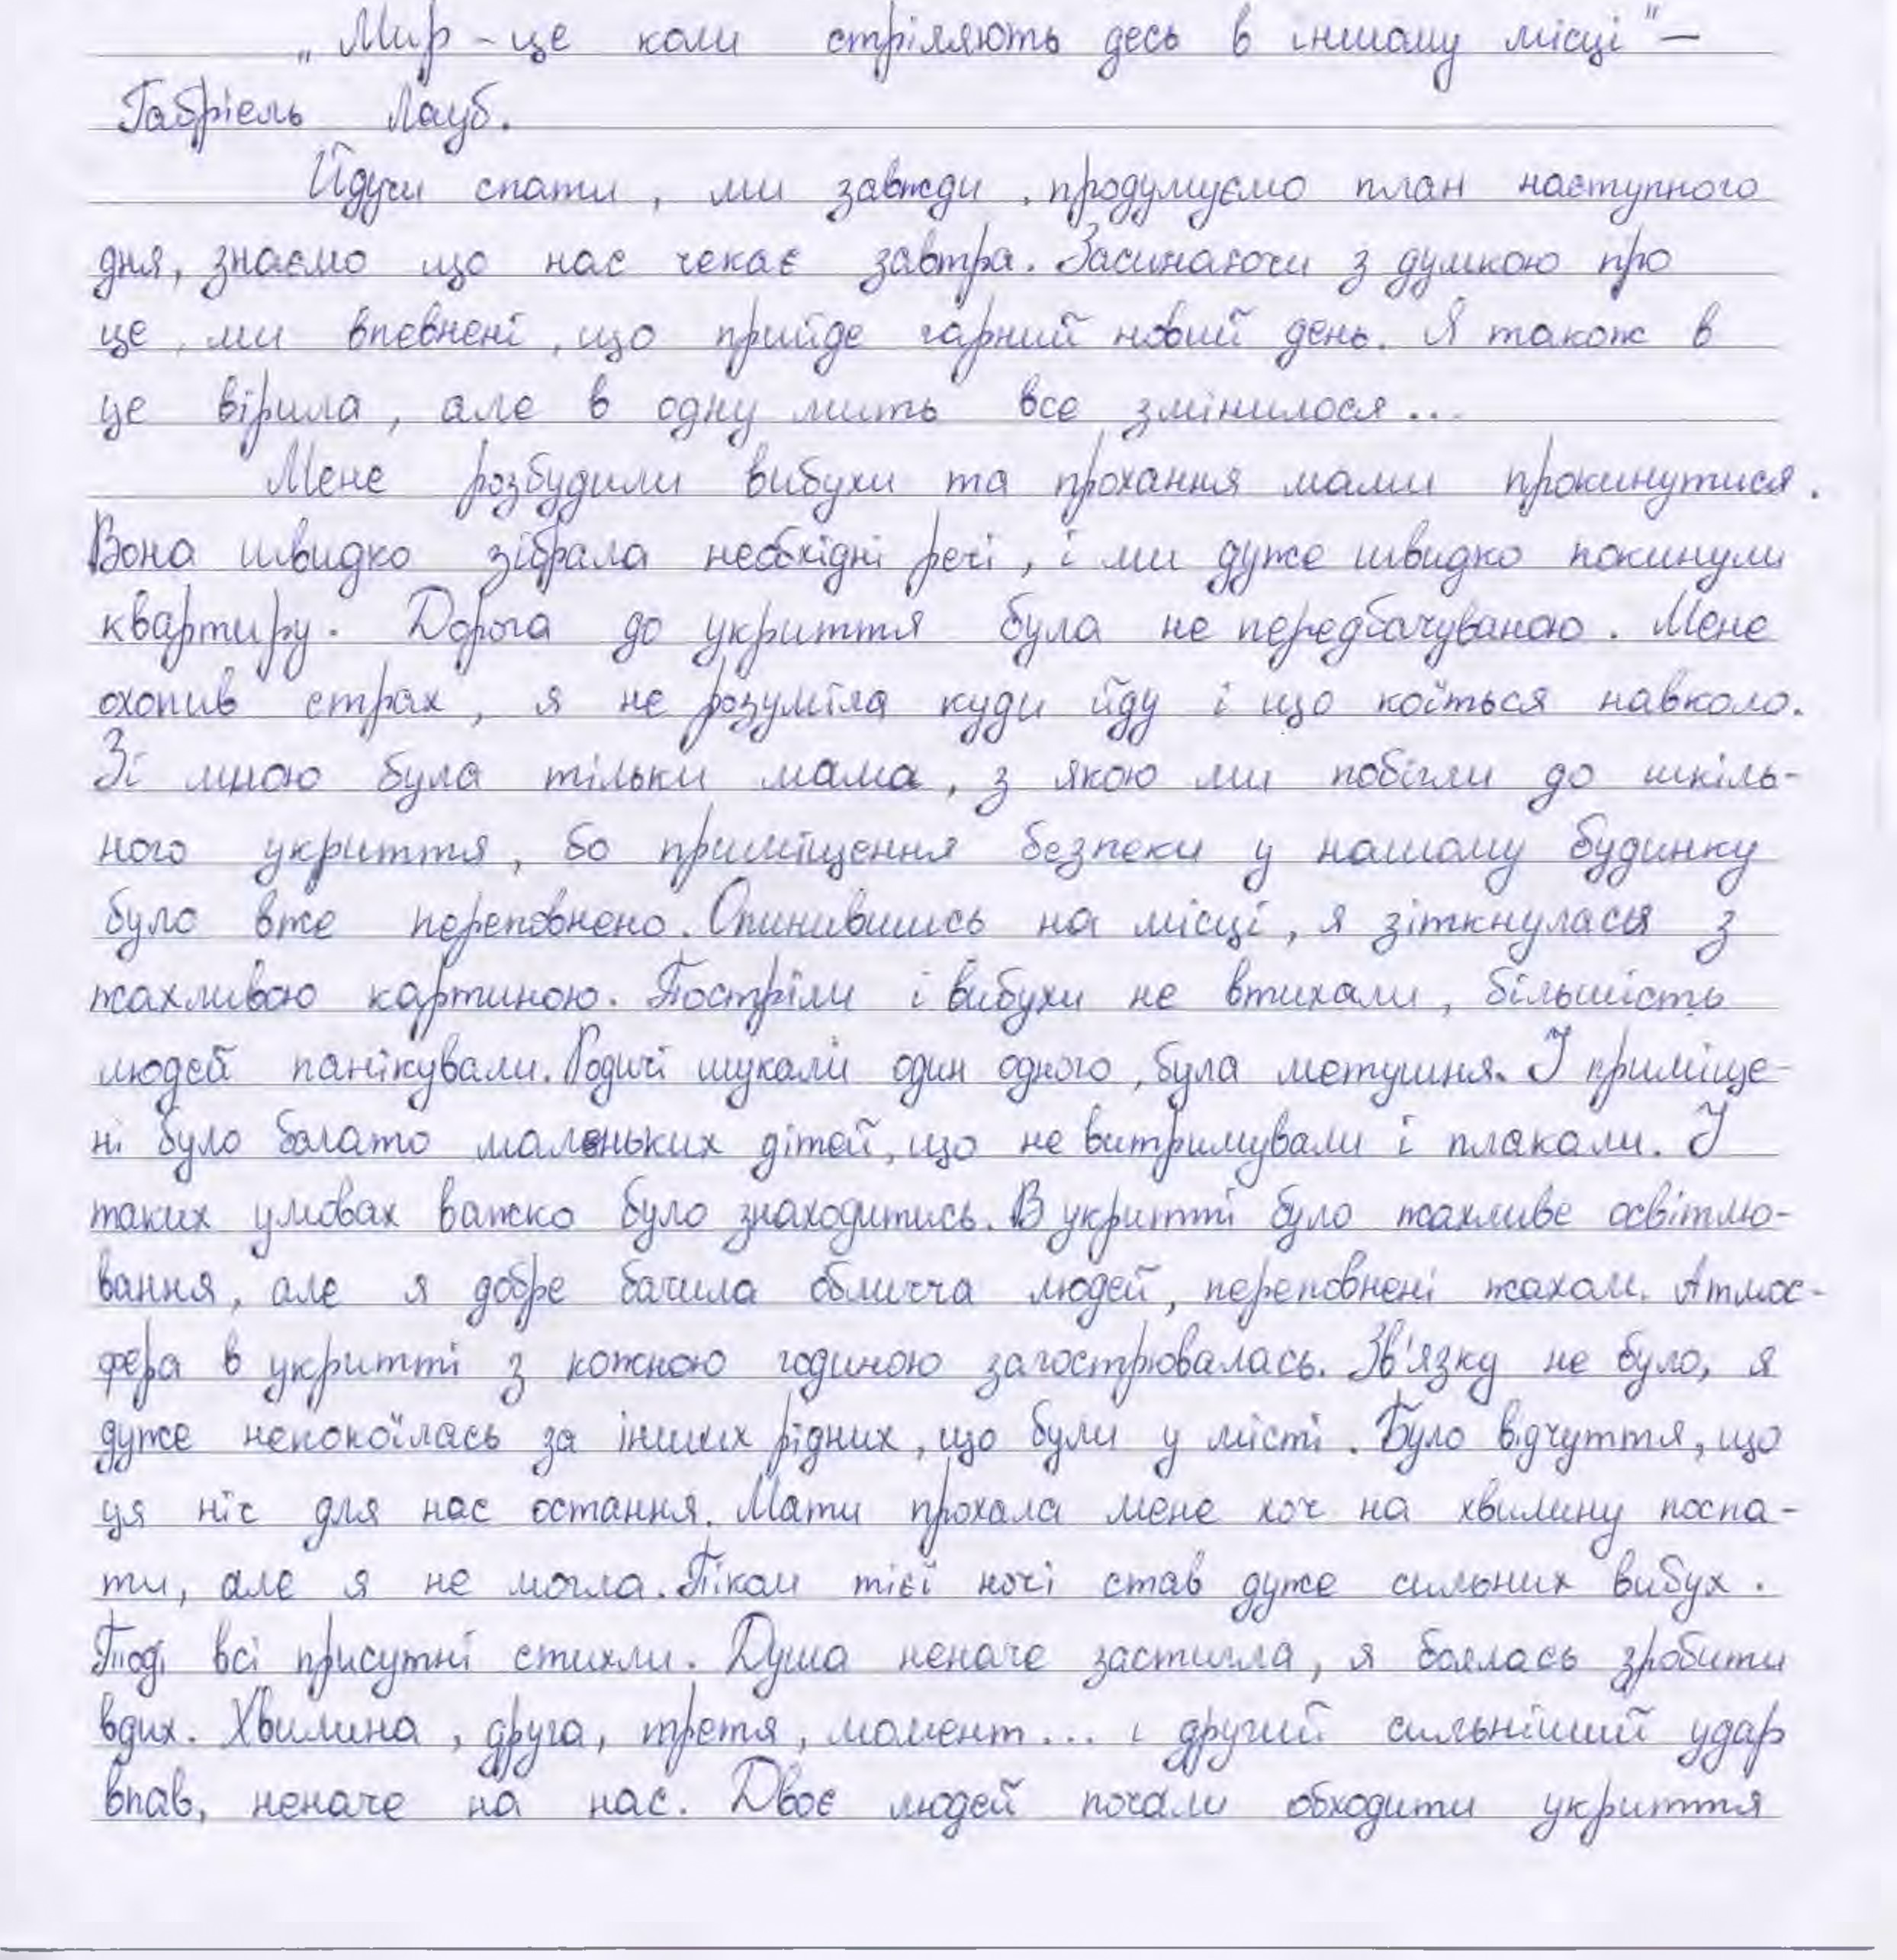 „Мир – це коли стріляють десь в іншому місці" –
Габріель Лауб.
Йдучи спати, ми завжди продумуємо план наступного
дня, знаємо що нас чекає завтра. Засинаючи з думкою про
це, ми впевнені, що прийде гарний новий день. Я також в
це вірила, але в одну мить все змінилося...
Мене розбудили вибухи та прохання мами прокинутися.
Вона швидко зібрала необхідні речі, і ми дуже швидко покинули
квартиру. Дорога до укриття була не передбачуваною. Мене
охопив страх, я не розуміла куди йду і що коїться навколо.
Зі мною була тільки мама, з якою ми побігли до шкіль-
ного укриття, бо приміщення безпеки у нашому будинку
було вже переповнено. Опинившись на місці, я зіткнулася з
жахливою картиною. Постріли і вибухи не втихали, більшість
людей панікували. Родичі шукали один одного, була метушня. У приміще-
ні було багато маленьких дітей, що не витримували і плакали. У
таких умовах важко було знаходитись. В укритті було жахливе освітлю-
вання, але я добре бачила обличчя людей, переповнені жахом. Атмос-
фера в укритті з кожною годиною загострювалась. Зв'язку не було, я
дуже непокоїлась за інших рідних, що були у місті. Було відчуття, що
ця ніч для нас остання. Мати прохала мене хоч на хвилину поспа-
ти, але я не могла. Піком тієї ночі став дуже сильних вибух.
Тоді всі присутні стихли. Душа неначе застигла, я боялась зробити
вдих. Хвилина, друга, третя, момент... і другий сильніший удар
впав, неначе на нас. Двоє людей почали обходити укриття